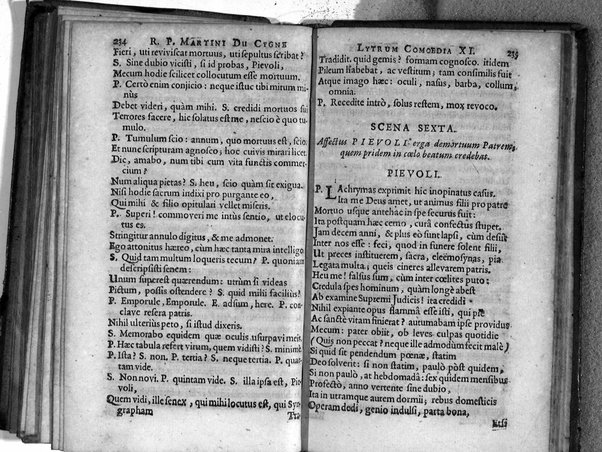 234 R. P. MARTINI DU CYGNE
Fieri, uti reviviscat mortuus, uti sepultus scribat?
S. Sine dubio vicisti, si id probas, Pievoli,
Mecum hodie scilicet collocutum esse mortuum.
P. Certò enim conjicio: neque istuc tibi mirum mi-
nùs
Debet videri, quàm mihi. S. credidi mortuos sui
Terrores facere, hic solatus est me, nescio è quo tu-
mulo.
P. Tumulum scio: annum, quo mortuus est, scio:
Et nunc scripturam agnosco; hoc cuivis mirari licet.
Dic, amabo, num tibi cum vita functis commer-
cium?
Num aliqua pietas? S. heu, scio quàm sit exigua.
Nisi hodie sacrum indixi pro purgante eo,
Qui mihi & filio opitulari vellet miseris.
P. Superi! commoveri me intùs sentio, ut elocu-
tus es.
Stringitur annulo digitus, & me admonet.
Ego attonitus hæreo, cum hæc tanta mira intelligo.
S. Quid tam multum loqueris tecum? P. quoniam
descripsisti senem:
Unum superest quærendum: utrùm si videas
Pictum, possis ostendere? S. quid mihi facilius?
P. Emporule, Emporule. E. adsum, here. P. con-
clave resera patris.
Nihil ulterius peto, si istud dixeris.
S. Memorabo equidem quæ oculis usurpavi meis.
P. Hæc tabula refert virum, quem vidisti? S. minimè.
P. Ista? S. non. P. tertia? S. neque tertia. P. quar-
tam vide.
S. Non novi. P. quintam vide. S. illa ipsa est, Pie-
voli,
Quem vidi, ille senex, qui mihi locutus est, qui Syn-
grapham
Tra-
LYTRUM COMOEDIA XI. 235
Tradidit. quid gemis? formam cognosco. itidem
Pileum habebat, ac vestitum; tam consimilis fuit
Atque imago hæc: oculi, nasus, barba, collum,
omnia.
P. Recedite intrò, solus restem, mox revoco.
SCENA SEXTA.
Affectus PIEVOLI erga demortuum Patrem,
quem pridem in cœlo beatum credebat.
PIEVOLI.
P. Lachrymas exprimit hic inopinatus casus.
Ita me Deus amet, ut animus filii pro patre
Mortuo usque antehac in spe securus fuit:
Ita postquam hæc cerno, curâ consectus stupet.
Jam decem anni, & plus eò sunt lapsi, cùm desiit
Inter nos esse: feci, quod in funere solent filii,
Ut preces instituerem, sacra, eleëmosynas, pia
Legata multa; queis cineres allevarem patris.
Heu me! falsus sum, cùm inter cœlites puto:
Credula spes hominum, quàm longè abest
Ab examine Supremi Judicis! ita credidi
Nihil expiante opus flammâ esse isti, qui piè
Ac sanctè vitam finierat? autumabam ipse providus
Mecum: pater obiit, ob leves culpas quotidie
(Quis non peccat? neque ille admodùm fecit malè)
Si quid sit pendendum pœnæ, statim
Deo solverit: si non statim, paulò pòst quidem,
Si non paulò, at hebdomadâ: sex quidem mensibus
Profectò, anno vertente sine dubio,
Ita in utramque aurem dormii; rebus domesticis
Operam dedi, genio indulsi, parta bona,
Etsi